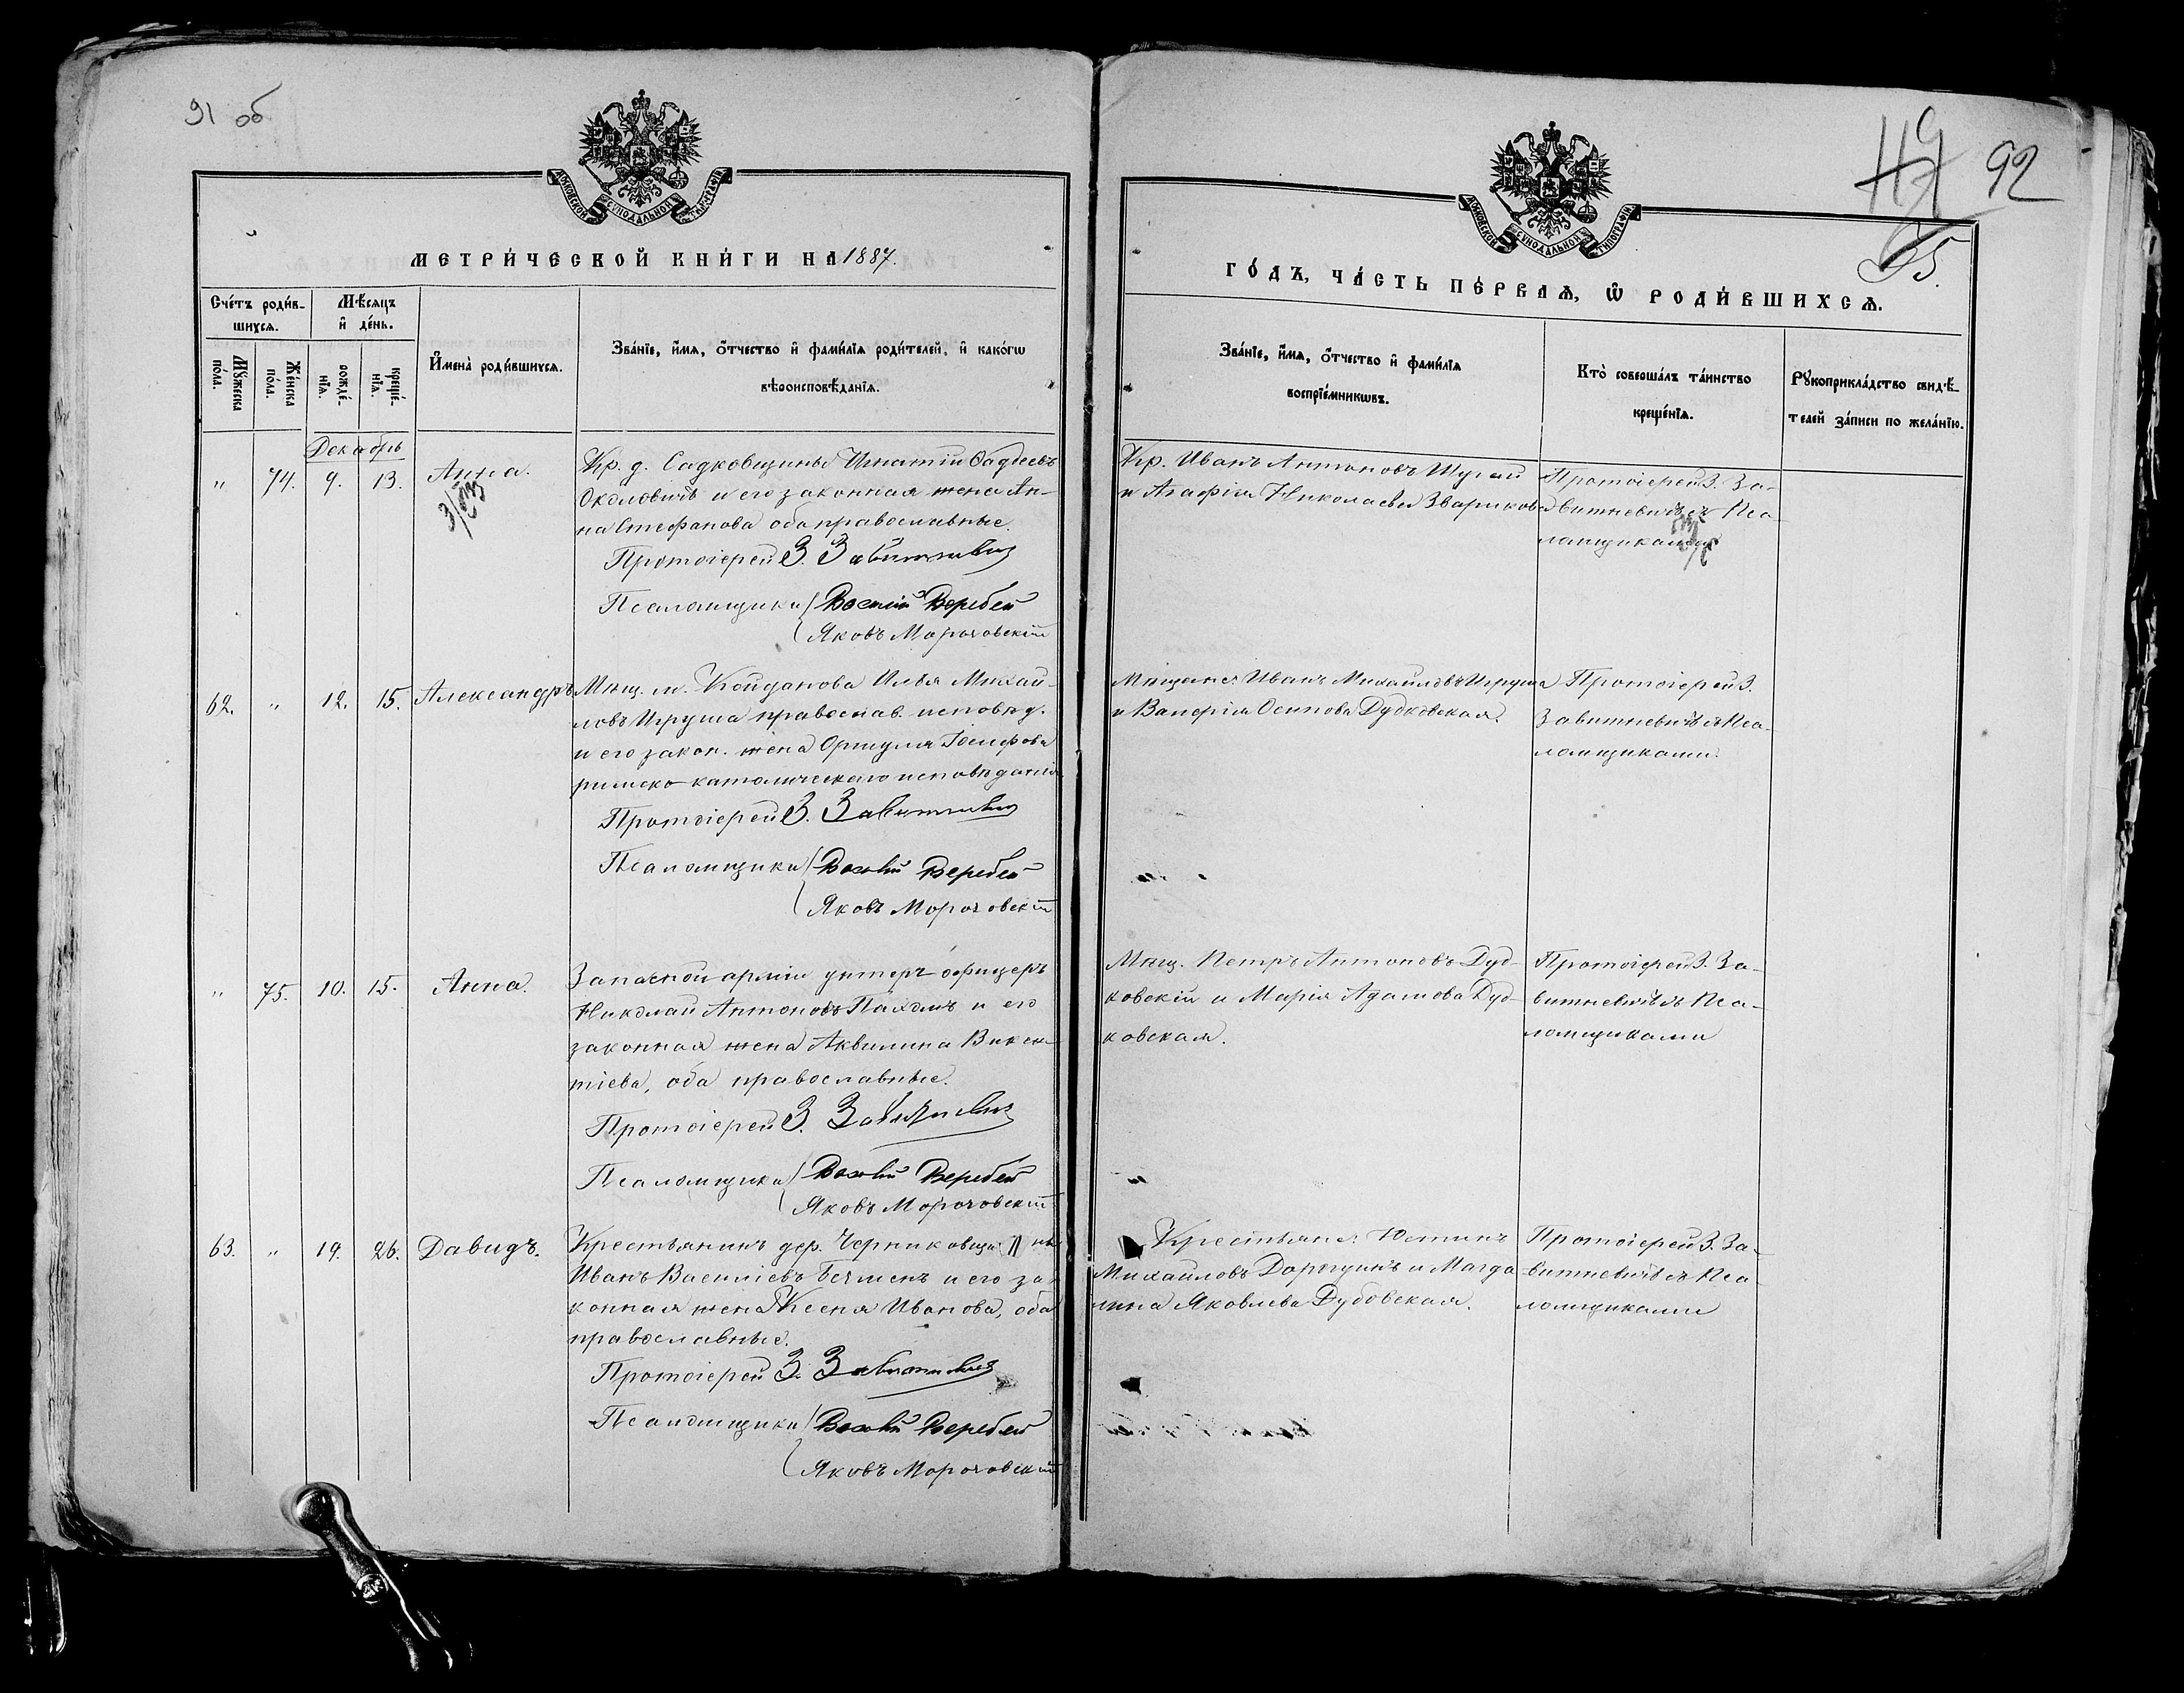 91 об
МОСКОВСКОЙ СѴНОДАЛЬНОЙ ТИПОГРАФІИ
МЕТРИ́ЧЕСКОЙ КНИ́ГИ НА 1887.
Сче́тъ роди́в-
шихсѧ.
Мѣ́сѧцъ
и҆ де́нь.
Мꙋ́жеска
по́ла.
Же́нска
по́ла.
рожде́-
нїѧ.
креще́-
нїѧ.
И҆мена̀ роди́вшихсѧ.
Зва́нїе, и҆́мѧ, ѻ҆́тчество и҆ фамилїѧ роди́телей, и҆ како́гѡ
вѣроисповѣ́данїѧ.
Декабрь
" 74. 9. 13. Анна.
Кр. д. Садковщины Игнатій Фадѣевъ
Околовичъ и его законная жена Ан-
на Стефанова оба православные.
Протоіерей З. Завитневичъ
Псаломщики Василій Вербей
Яковъ Морочовскій
62. " 12. 15. Александръ
Мѣщ. м. Койданова Илья Михай-
ловъ Игруша православ. исповѣд.
и его закон. жена Оршуля Іосифова
римско-католическаго исповѣданія.
Протоіерей З. Завитневичъ
Псаломщики Василій Вербей
Яковъ Морочовскій
" 75. 10. 15. Анна.
Запасной арміи унтеръ-офицеръ
Николай Антоновъ Пахомъ и его
законная жена Аквилина Викен-
тіева, оба православные.
Протоіерей З. Завитневичъ
Псаломщики Василій Вербей
Яковъ Морочовскій
63. " 19. 26. Давидъ.
Крестьянинъ дер.
Иванъ Василіевъ и его за-
конная жена Ксенія Иванова, оба
православные.
Протоіерей З. Завитневичъ
Псаломщики Василій Вербей
Яковъ Морочовскій
92
МОСКОВСКОЙ СѴНОДАЛЬНОЙ ТИПОГРАФІИ
ГО́ДЪ, ЧА́СТЬ ПЕ́РВАѦ, Ѡ҆ РОДИ́ВШИХСѦ.
Зва́нїе, и҆́мѧ, ѻ҆́тчество и҆ фами́лїѧ
воспрїе́мникѡвъ.
Кто̀ соверша́лъ та́инство
креще́нїѧ.
Рꙋкоприкла́дство свидѣ́-
телей за́писи по жела́нїю.
Кр. Иванъ Антоновъ Шугай
и Агафія Николаева Зварикова
Протоіерей З. За-
витневичъ съ Пса-
ломщиками
Мѣщане: Иванъ Михайловъ Игруша
и Валерія Осипова Дубковская.
Протоіерей З.
Завитневичъ съ Пса-
ломщиками.
Мѣщ. Петръ Антоновъ Дуб-
ковскій и Марія Адамова Дуб-
ковская.
Протоіерей З. За-
витневичъ съ Пса-
ломщиками
Крестьяне: Юстинъ
Михайловъ и Магда-
лина Яковлева Дубовская.
Протоіерей З. За-
витневичъ съ Пса-
ломщиками